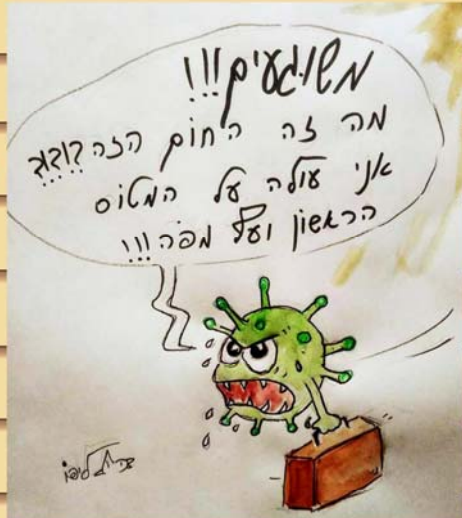 משוגעים!!!
מה זה החום הזה?!?!?
אני עולה על המטוס
הראשון ועף מפה!!!